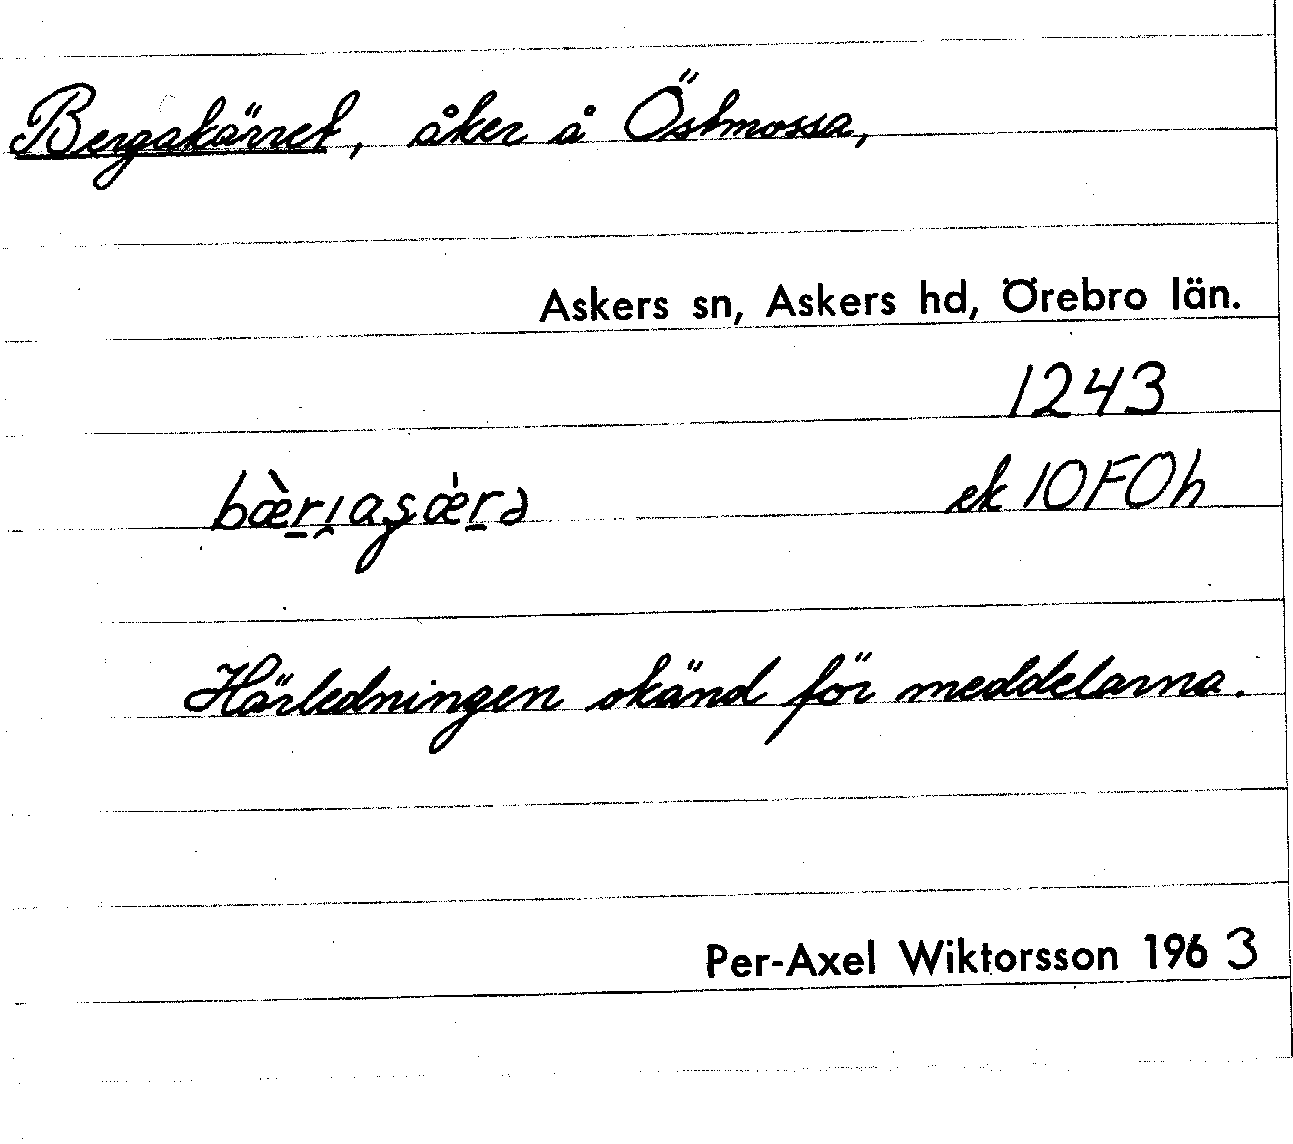 Bergakärret, åker å Östmossa,
Askers sn, Askers hd, Örebro län.
1243
bæ̀r̠ı̯aʂæ̀r̠ə ek 10F0h
Härledningen okänd för meddelarna.
Per-Axel Wiktorsson 1963